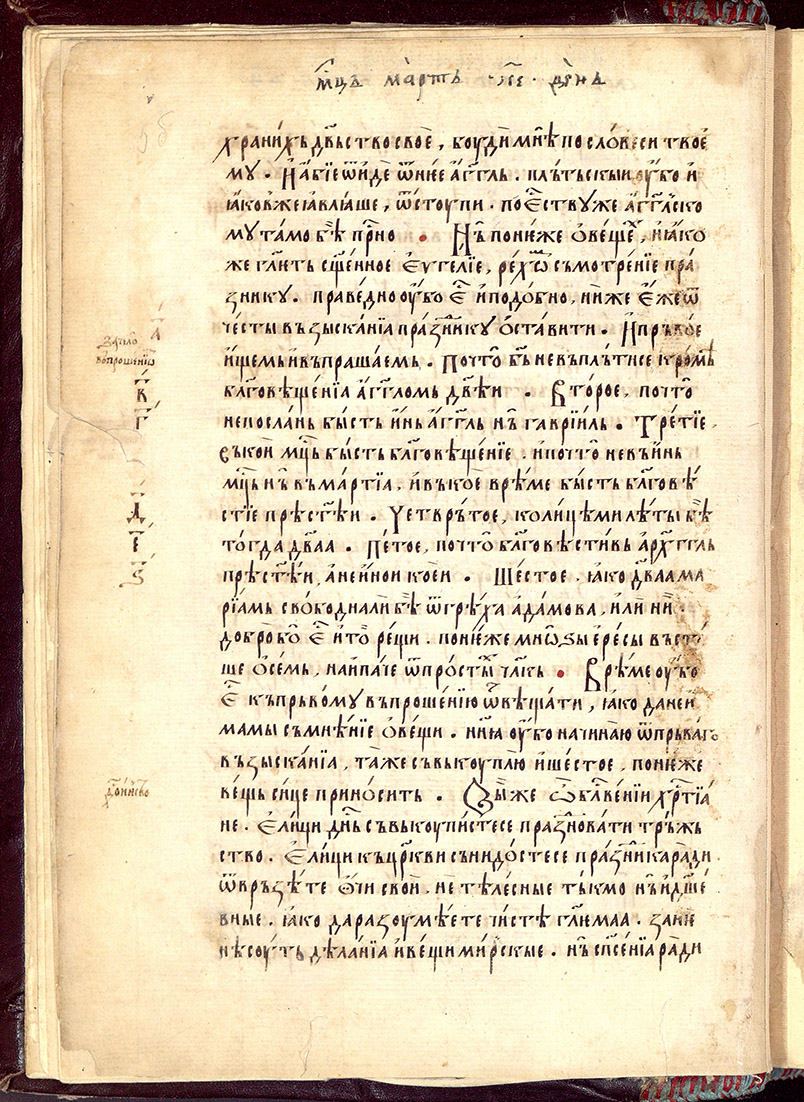 мⷭ҇ць мартъ ·к҃е· дѐнь
храни́хъ дв҃ьство своѐ, боу́ди мнѣ̀ по сло́веси твое́
му. И҆ а҆бїе ѿи́де ѿ нѥе а҆гг҃ль. плъ́тьскыи оу҆́бо и҆
ꙗ҆́ковже ꙗ҆влꙗ́аше, ѿстоупи. по є҆ⷭ҇ству же а҆гг҃лско
му тамо бѣ̀ при́сно · Нъ̀ понѥ́же ѻ вещеⷯ, и҆ ꙗ҆́ко
же гл҃ють сщ҃е́нное є҆у҃гелїе, ре́хѡⷨ съмотре́нїе пра́
знику. праве́дно оу҆́бо є҆ⷭ҇ и҆ подо́бно, ни́же є҆́же ѿ
че́сты въꙁыска́нїа пра́ꙁⷣнику о҆ста́вити. И҆ пръ́вое
и҆́щемь и҆ въпраша́емь. Почто̀ бг҃ь не въплъ́тисе кромѣ
бл҃говѣще́нїа а҆гг҃ломь дв҃ѣи · Вто́рое, почто̀
не посла́нь бы́сть и҆́нь а҆́гг҃ль нъ̀ гаврїи́ль. Тре́тїе
въ ко́и мц҃ь бы́сть бл҃говѣще́нїе. и҆ почто̀ не въ и҆́нь
мц҃ь нъ̀ въ ма́ртїа, и҆ въ ко̀е врѣ́ме бы́сть бл҃говѣ́
стїе прѣст҃ѣи. Четвръ́тое, колицѣ́ми лѣ́ты бѣ̀
тогда дв҃аа. Пе́тое, почто̀ бл҃говѣ́стивь а҆рха́гг҃ль
прѣст҃ѣи, а не и҆но́и кое́и. Ше́стое. ꙗ҆ко дв҃аа ма
рїа́мь свобо́дна ли бѣ̀ ѿ грѣ́ха а҆да́мова, и҆лѝ нѝ.
добро̀ бо є҆ⷭ҇ и҆ то̀ рещи. понѥ́же мнѡ́ꙁы е҆ресы въст
ше ѻ се́мь, наипа́че ѿ про́стыⷯ чл҃кь · Врѣ́ме оу҆́бо
є҆ⷭ҇ къ пръвому въпроше́нїю ѿвѣща́ти, ꙗ҆ко да не и҆
мамы съмнѣ́нїе ѻ ве́щи. нн҃ꙗ оу҆́бо начина́ю ѿ пръваго
въꙁыска́нїа, та́же съвькоу́плю и҆ ше́стое. понѥ́же
ве́щь си́це прино́сить. Сы́же ѡ҆ бл҃ве́нїи хрⷭ҇тїа́
не. Є҆ли́ци дн҃ь съвькоупи́стесе праꙁⷣнова́ти тръ́жь
ство. Є҆ли́ци къ цр҃кви съни́достесе пра́ꙁⷣника ра́ди.
ѿвръ́ꙁѣте ѻ҆́чи свои̑. не тѣле́сные тъ́кмо нъ̀ и҆ дш҃е́
вные. ꙗ҆ко да раꙁоумѣ́ете чи́стѣ гл҃ѥмаа. ꙁанѥ̀
нѣ́соуть дѣла́нїа и҆ ве́щи ми́рскые. нъ̀ сп҃се́нїа ради
ꙁачѧло
въпрошенїѡⷨ
а҃
в҃
г҃
д҃
е҃
ѕ҃